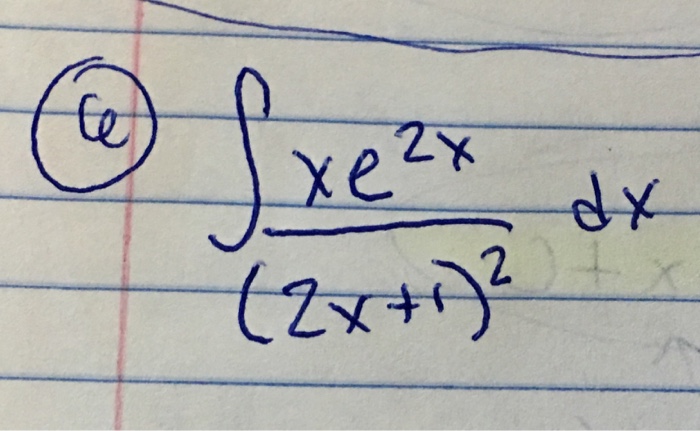 6 ∫ xe^{2x} / (2x+1)^2 dx